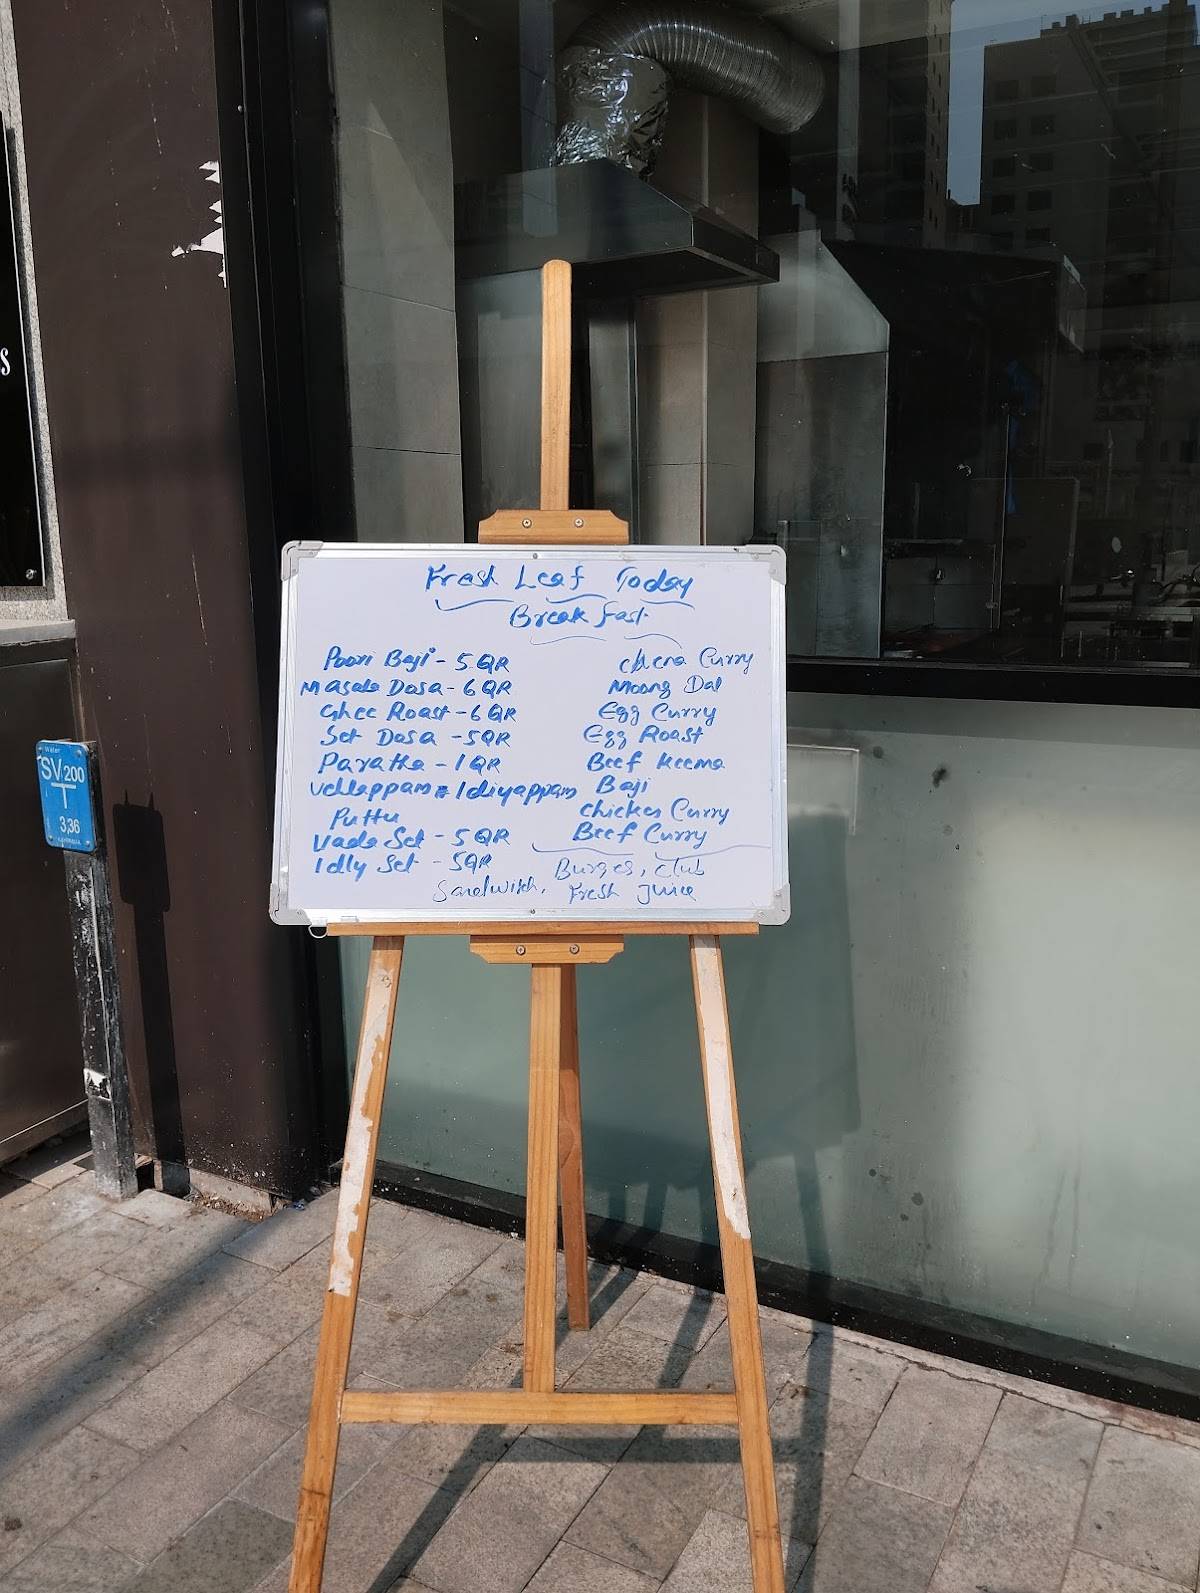 Fresh Leaf Today
Break fast
Poori Baji - 5 QR
Masala Dosa - 6 QR
Ghee Roast - 6 QR
Set Dosa - 5 QR
Paratha - 1 QR
Vellappam Idiyappam
Puttu
Vada Set - 5 QR
Idly Set - 5 QR
Chena Curry
Moong Dal
Egg Curry
Egg Roast
Beef Keema
Baji
Chicken Curry
Beef Curry
Burger, club
Sandwich, Fresh Juice
Water
SV 200
T
3,36
s